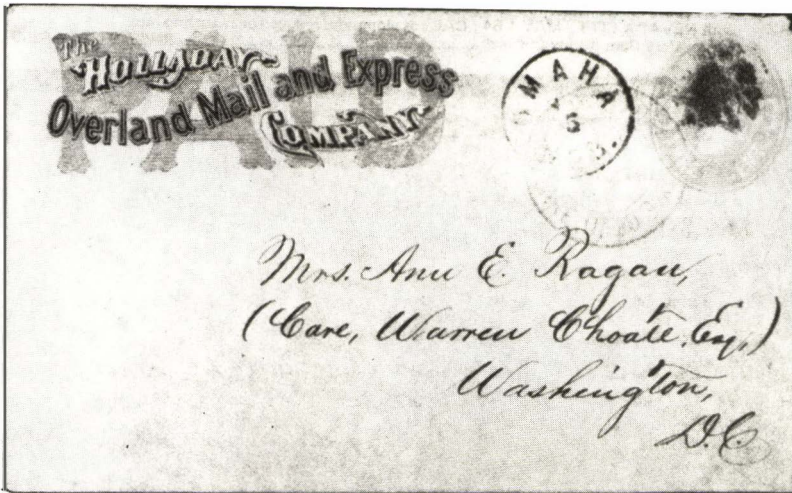 The
HOLLADAY
Overland Mail and Express
COMPANY
PAID
OMAHA
5
Mrs. Ann E. Ragan,
(Care, Warren Choate, Esq.)
Washington,
D.C.